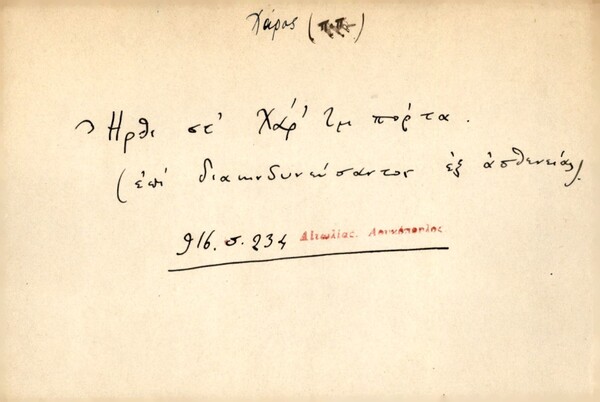 Χάρος
Ἦρθι στ' Χάρ' τμ πόρτα.
(ἐπὶ διακινδυνεύσαντος ἐξ ἀσθενείας)
916. σ. 234 Αἰτωλίας. Λουκόπουλος